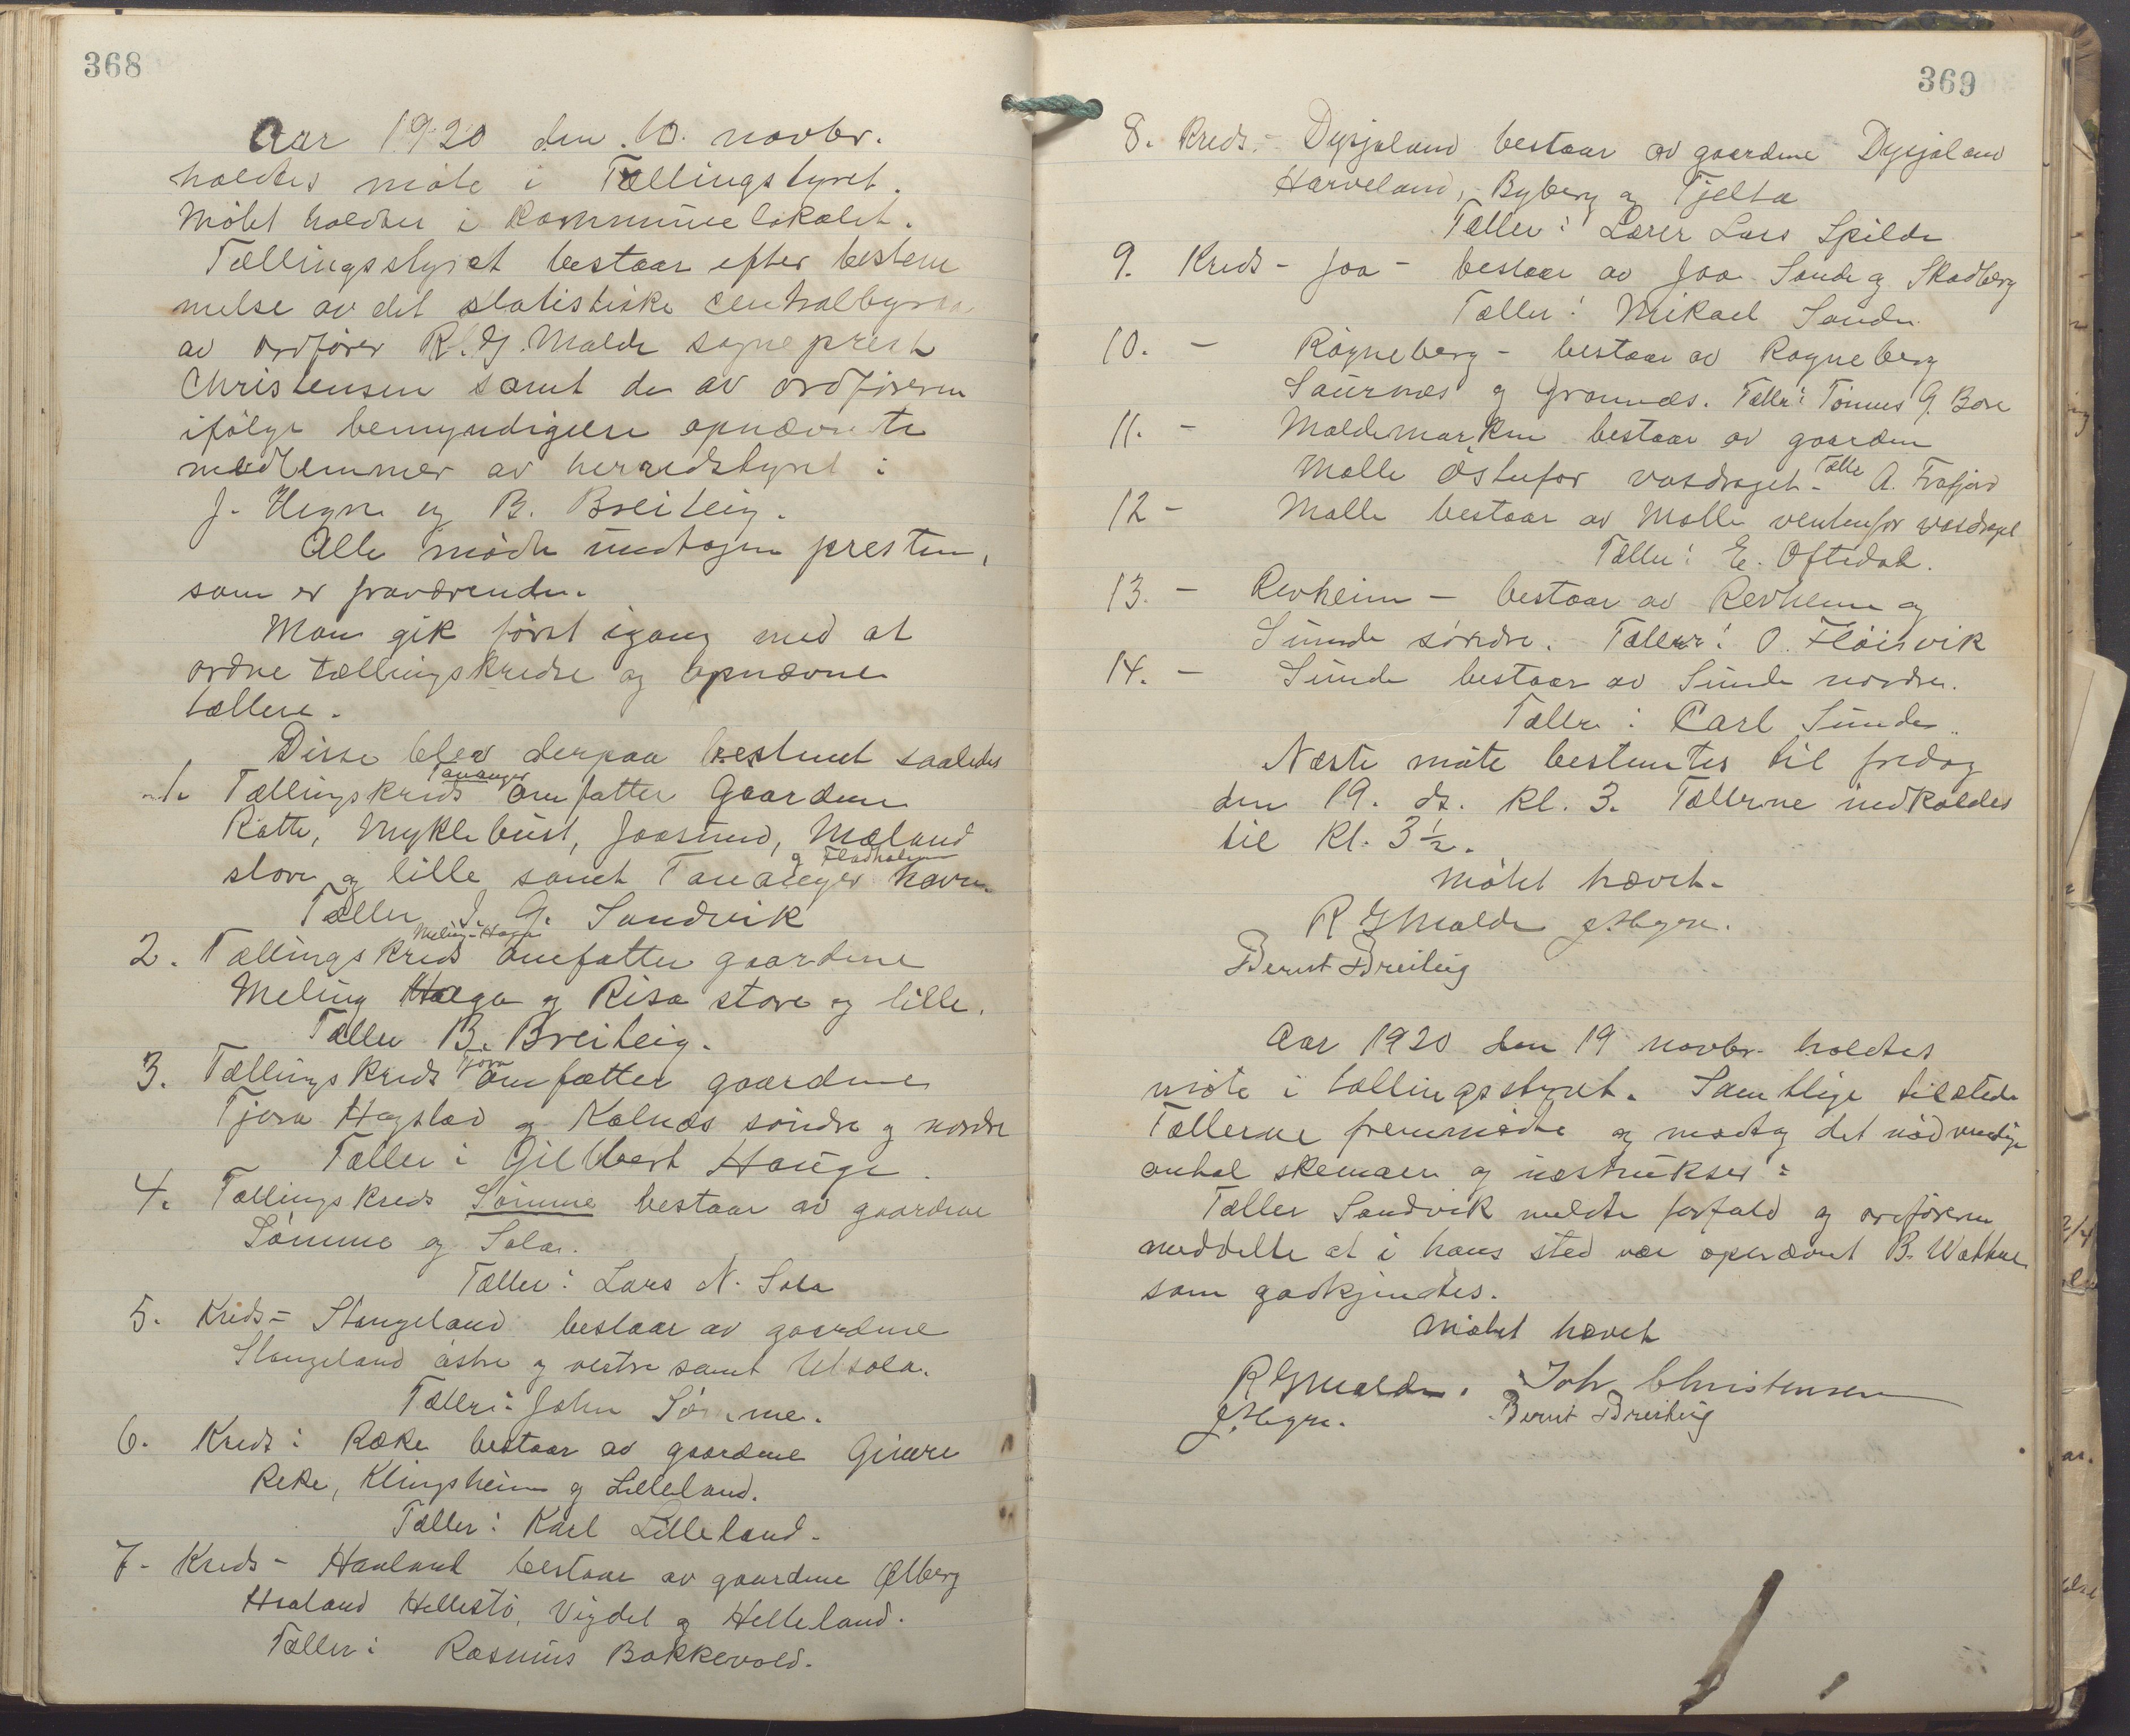 368
Aar 1920 den 10. novbr.
holdtes møte i Tællingstyret.
Møtet holdtes i Kommunelokalet.
Tællingsstyret bestaar efter bestem
melse av det statistiske centralbyraa
av ordfører R. G. Malde sogneprest
Christensen samt de av ordføreren
ifølge bemyndigelse opnævnte
medlemmer av herredstyret:
J. Hegre og B. Breileig.
Alle mødte undtagen presten,
som er fraværende.
Man gik først igang med at
ordne tællingskredse og opnævne
tællere.
Disse blev derpaa bestemt saaledes
1. Tællingskreds Tananger omfatter Gaardene
Røtte, Myklebust, Joasund, Mæland
store og lille samt Tananger havn og Fladholmen
Tæller J. G. Sandvik
2. Tællingskreds Meling-Haga omfatter gaardene
Meling Haga og Risa store og lille.
Tæller B. Breileig.
3. Tællingskreds Tjora omfatter gaardene
Tjora Hogstad og Kolnæs søndre og nordre
Tæller: Gilbert Hauge.
4. Tællingskreds Sømme bestaar av gaardene
Sømme og Sola.
Tæller: Lars N. Sola
5. Kreds - Stangeland bestaar av gaardene
Stangeland østre og vestre samt Utsola.
Tæller: John Sømme.
6. Kreds: Ræke bestaar av gaardene Gimre
Reke, Klingsheim og Lilleland.
Tæller: Karl Lilleland.
7. Kreds - Haaland bestaar av gaardene Ølberg
Haaland Hellestø, Vigdel og Helleland.
Tæller: Rasmus Bakkevold.
369
8. Kreds - Dysjaland bestaar av gaardene Dysjaland
Harveland, Byberg og Tjelta
Tæller: Lærer Lars Spilde
9. Kreds - Joa - bestaar av Joa Sande og Skadberg
Tæller: Mikael Sande
10. - Røgneberg - bestaar av Røgneberg
Sørnes og Grannæs. Tæller: Tønnes G. Bore
11. - Maldemarken bestaar av gaarden
Malle østenfor vasdraget - Tæller A. Frafjord
12 - Malle bestaar av Malle vestenfor vasdraget
Tæller: E. Oftedal.
13. - Revheim - bestaar av Revheim og
Sunde søndre. Tæller: O. Fløisvik
14. - Sunde bestaar av Sunde nordre.
Tæller: Carl Sunde.
Næste møte bestemtes til fredag
den 19. ds. kl. 3. Tællerne indkaldes
til kl. 3 ½.
Møtet hævet.
R G Malde J. Hegre.
Bernt Breileig
Aar 1920 den 19 novbr. holdtes
møte i tællingsstyret. Samtlige tilstede
Tællerne fremmødte og mottog det nødvendige
antal skemaer og instrukser.
Tæller Sandvik meldte forfald og ordføreren
meddelte at i hans sted var opnævnt B. Wathne
som godkjendtes.
Møtet hævet
R G Malde. Joh. Christensen
J. Hegre. Bernt Breileig